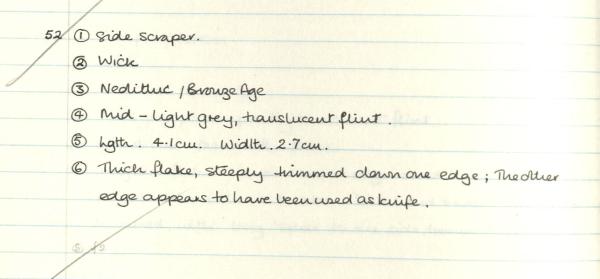 52 ① Side scraper.
② Wick
③ Neolithic / Bronze Age
④ Mid - light grey, translucent flint.
⑤ Lgth. 4.1cm. Width. 2.7cm.
⑥ Thick flake, steeply trimmed down one edge; The other
edge appears to have been used as knife.